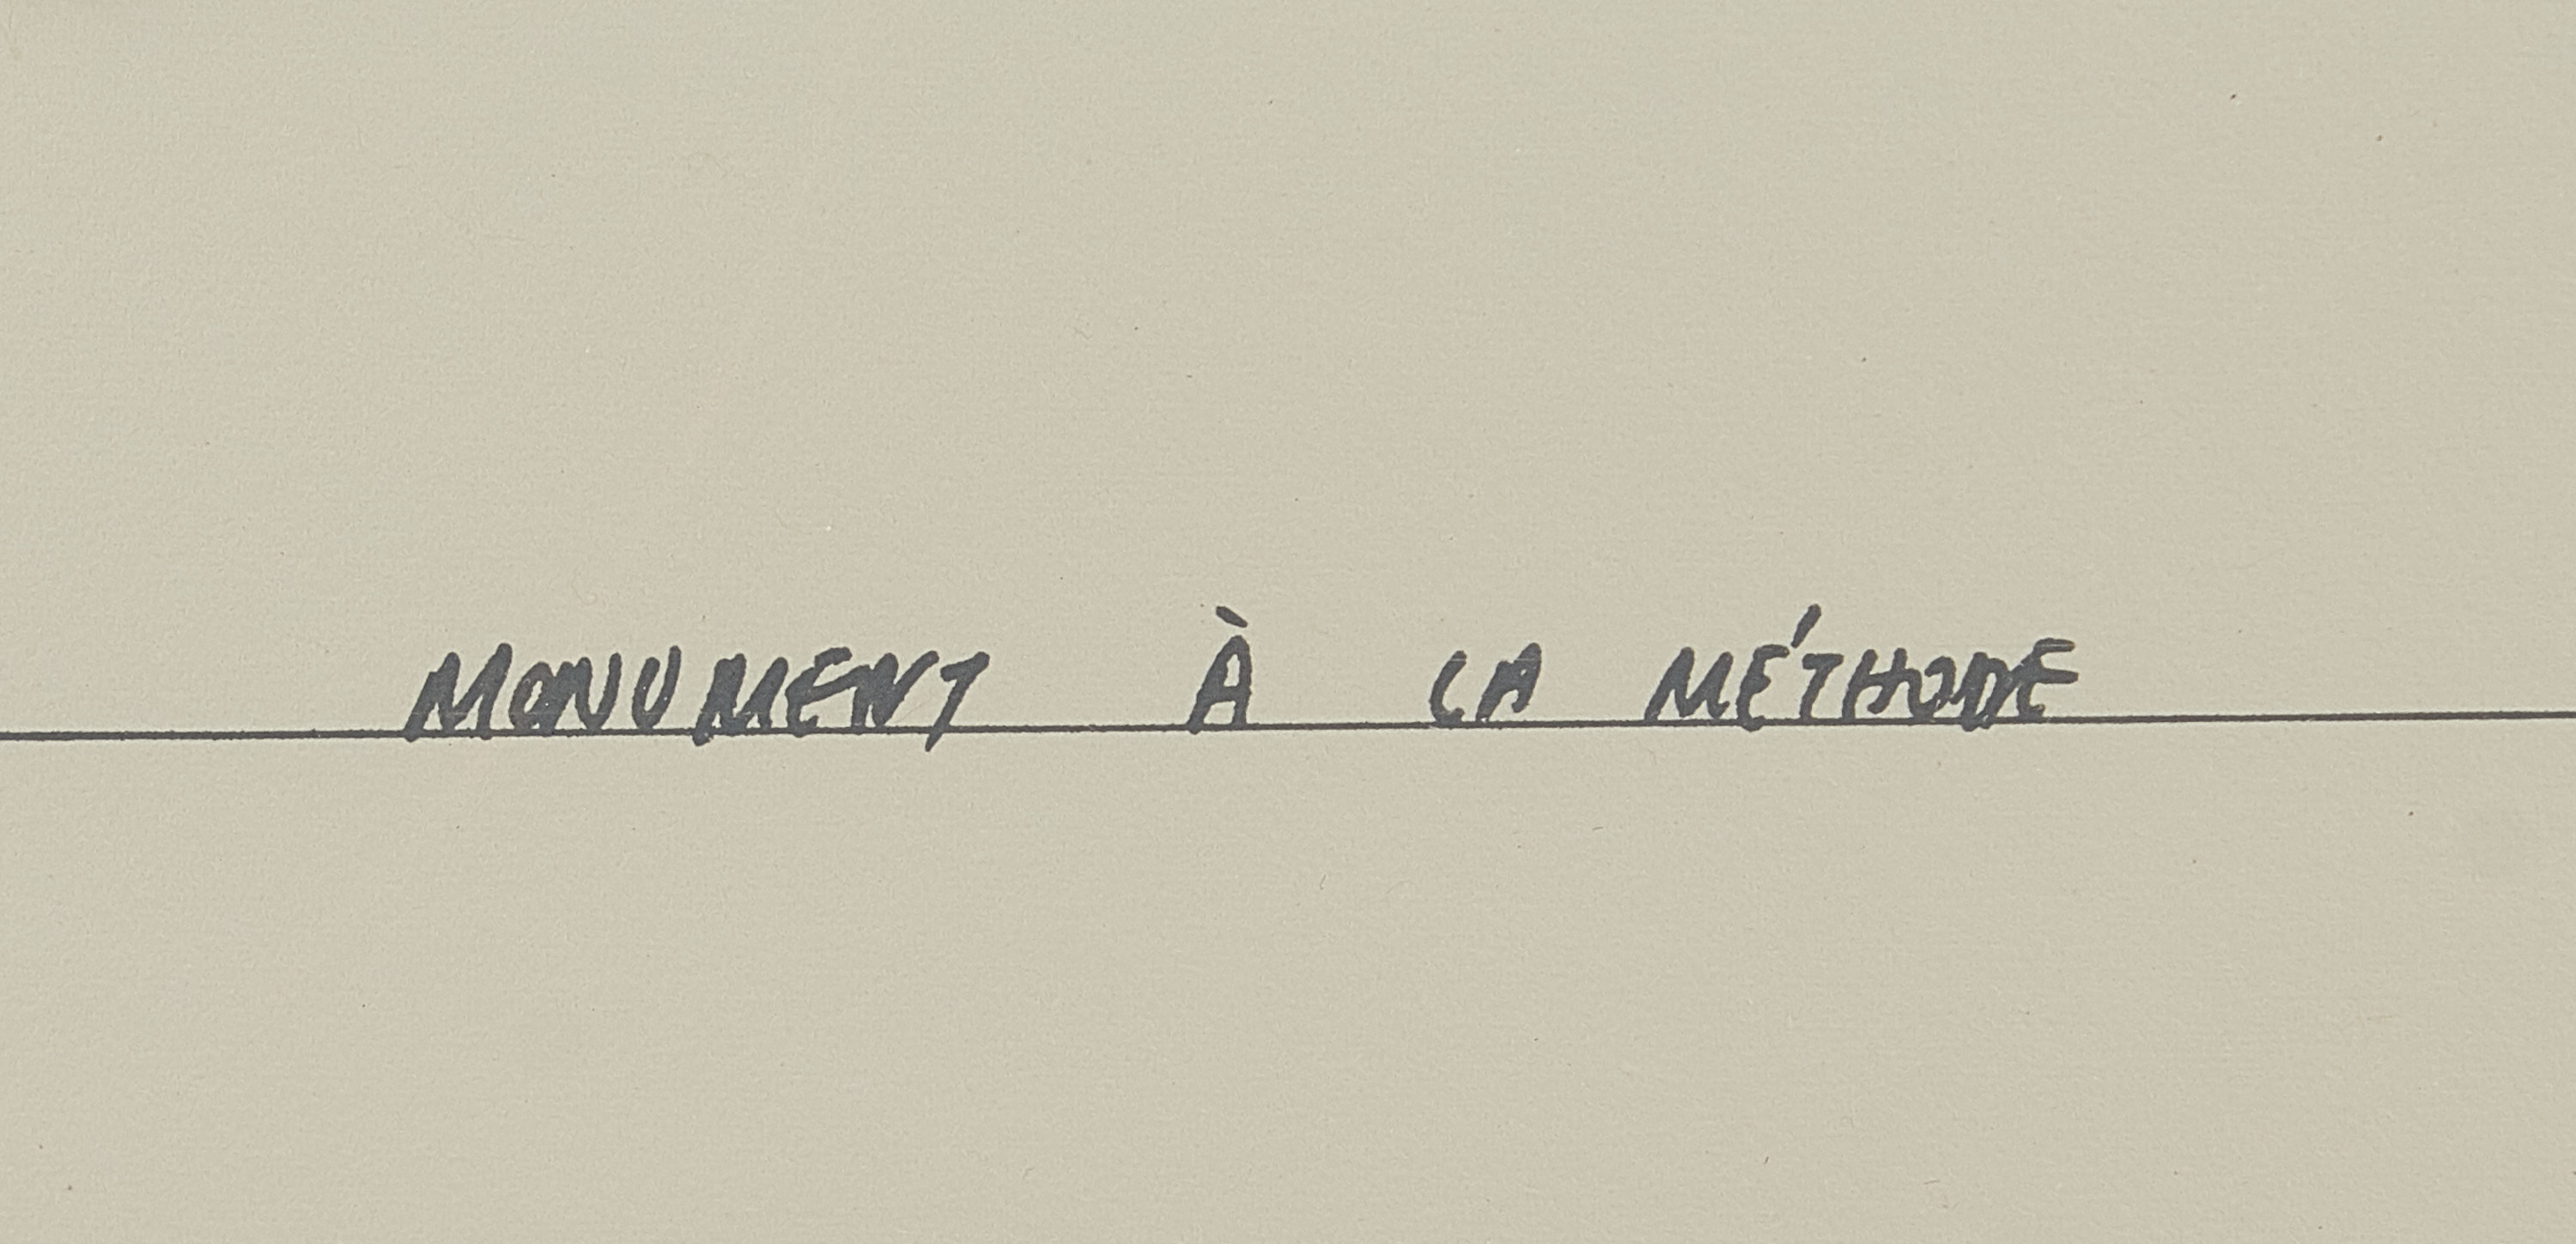 MONUMENT À LA MÉTHODE